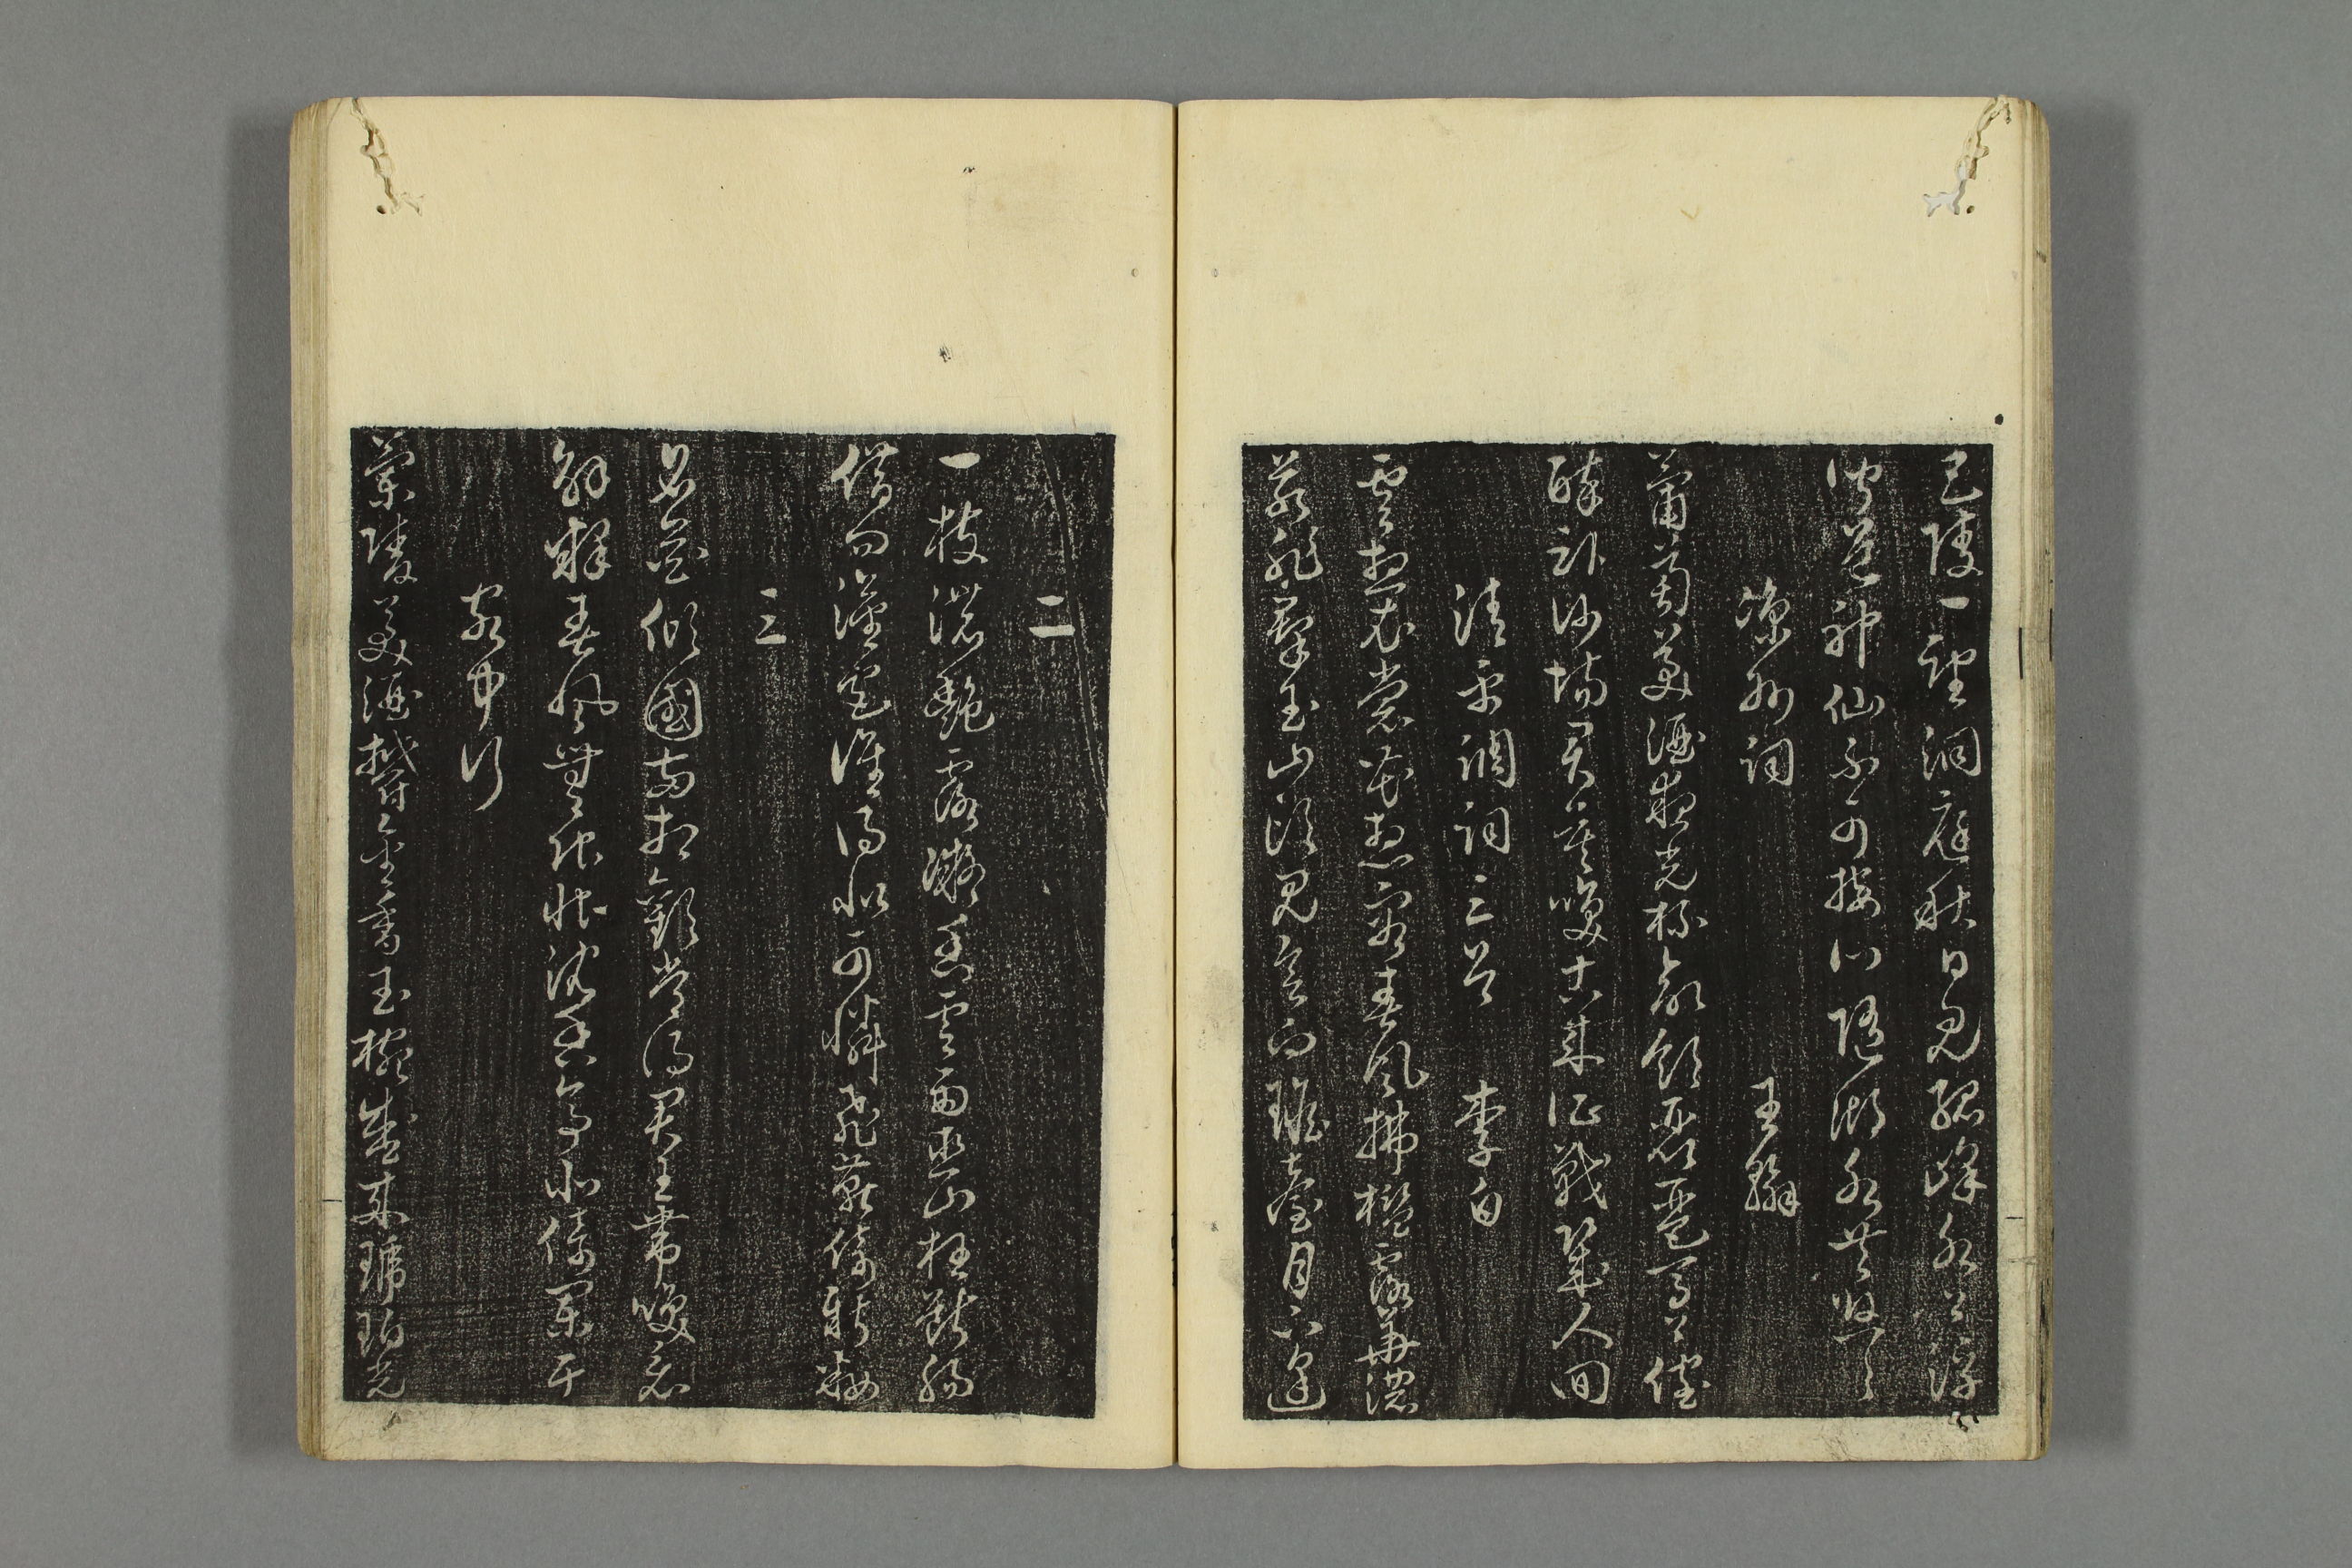 巴陵一望洞庭秋日見孤峰水上浮
聞道神仙不可接心隨湖水共悠々
涼州詞　王翰
蒲萄美酒夜光杯欲飲琵琶馬上催
醉臥沙場君莫咲古來征戰幾人回
清平調詞三首　李白
雲想衣裳花想容春風拂檻露華濃
若非羣玉山頭見會向瑤臺月下逢
二
一枝濃艶露凝香雲雨巫山枉斷腸
借問漢宮誰得似可憐飛燕倚新粧
三
名花傾國兩相歡常得君王帶咲看
解釋春風無限恨沈香亭北倚闌干
客中行
蘭陵美酒欝金香玉椀盛來琥珀光